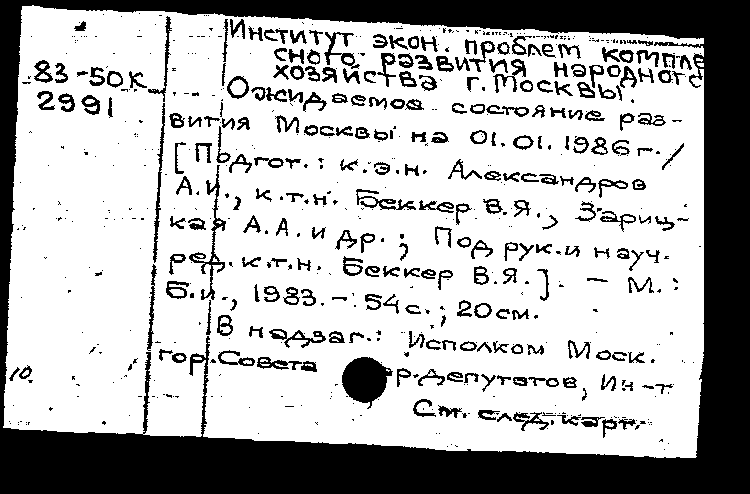 Институт экон. проблем компле
сного развития народного
хозяйства г. Москвы.
83-50К
2991
Ожидаемое состояние раз-
вития Москвы на 01.01.1986 г. /
[Подгот.: к.э.н. Александров
А.И., к.т.н. Беккер В.Я., Зариц-
кая А.А. и др.; Под рук. и науч.
ред. к.т.н. Беккер В.Я.]. - М.:
Б.и., 1983. - 54 с.; 20 см.
В надзаг.: Исполком Моск.
гор. Совета ар. депутатов, Ин-т
10.
См. след. карт.